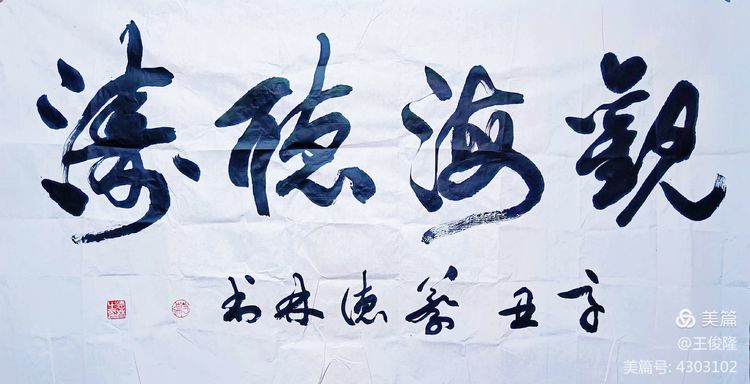 觀海聽濤
辛丑德林书
美篇
@王俊隆
美篇号: 4303102